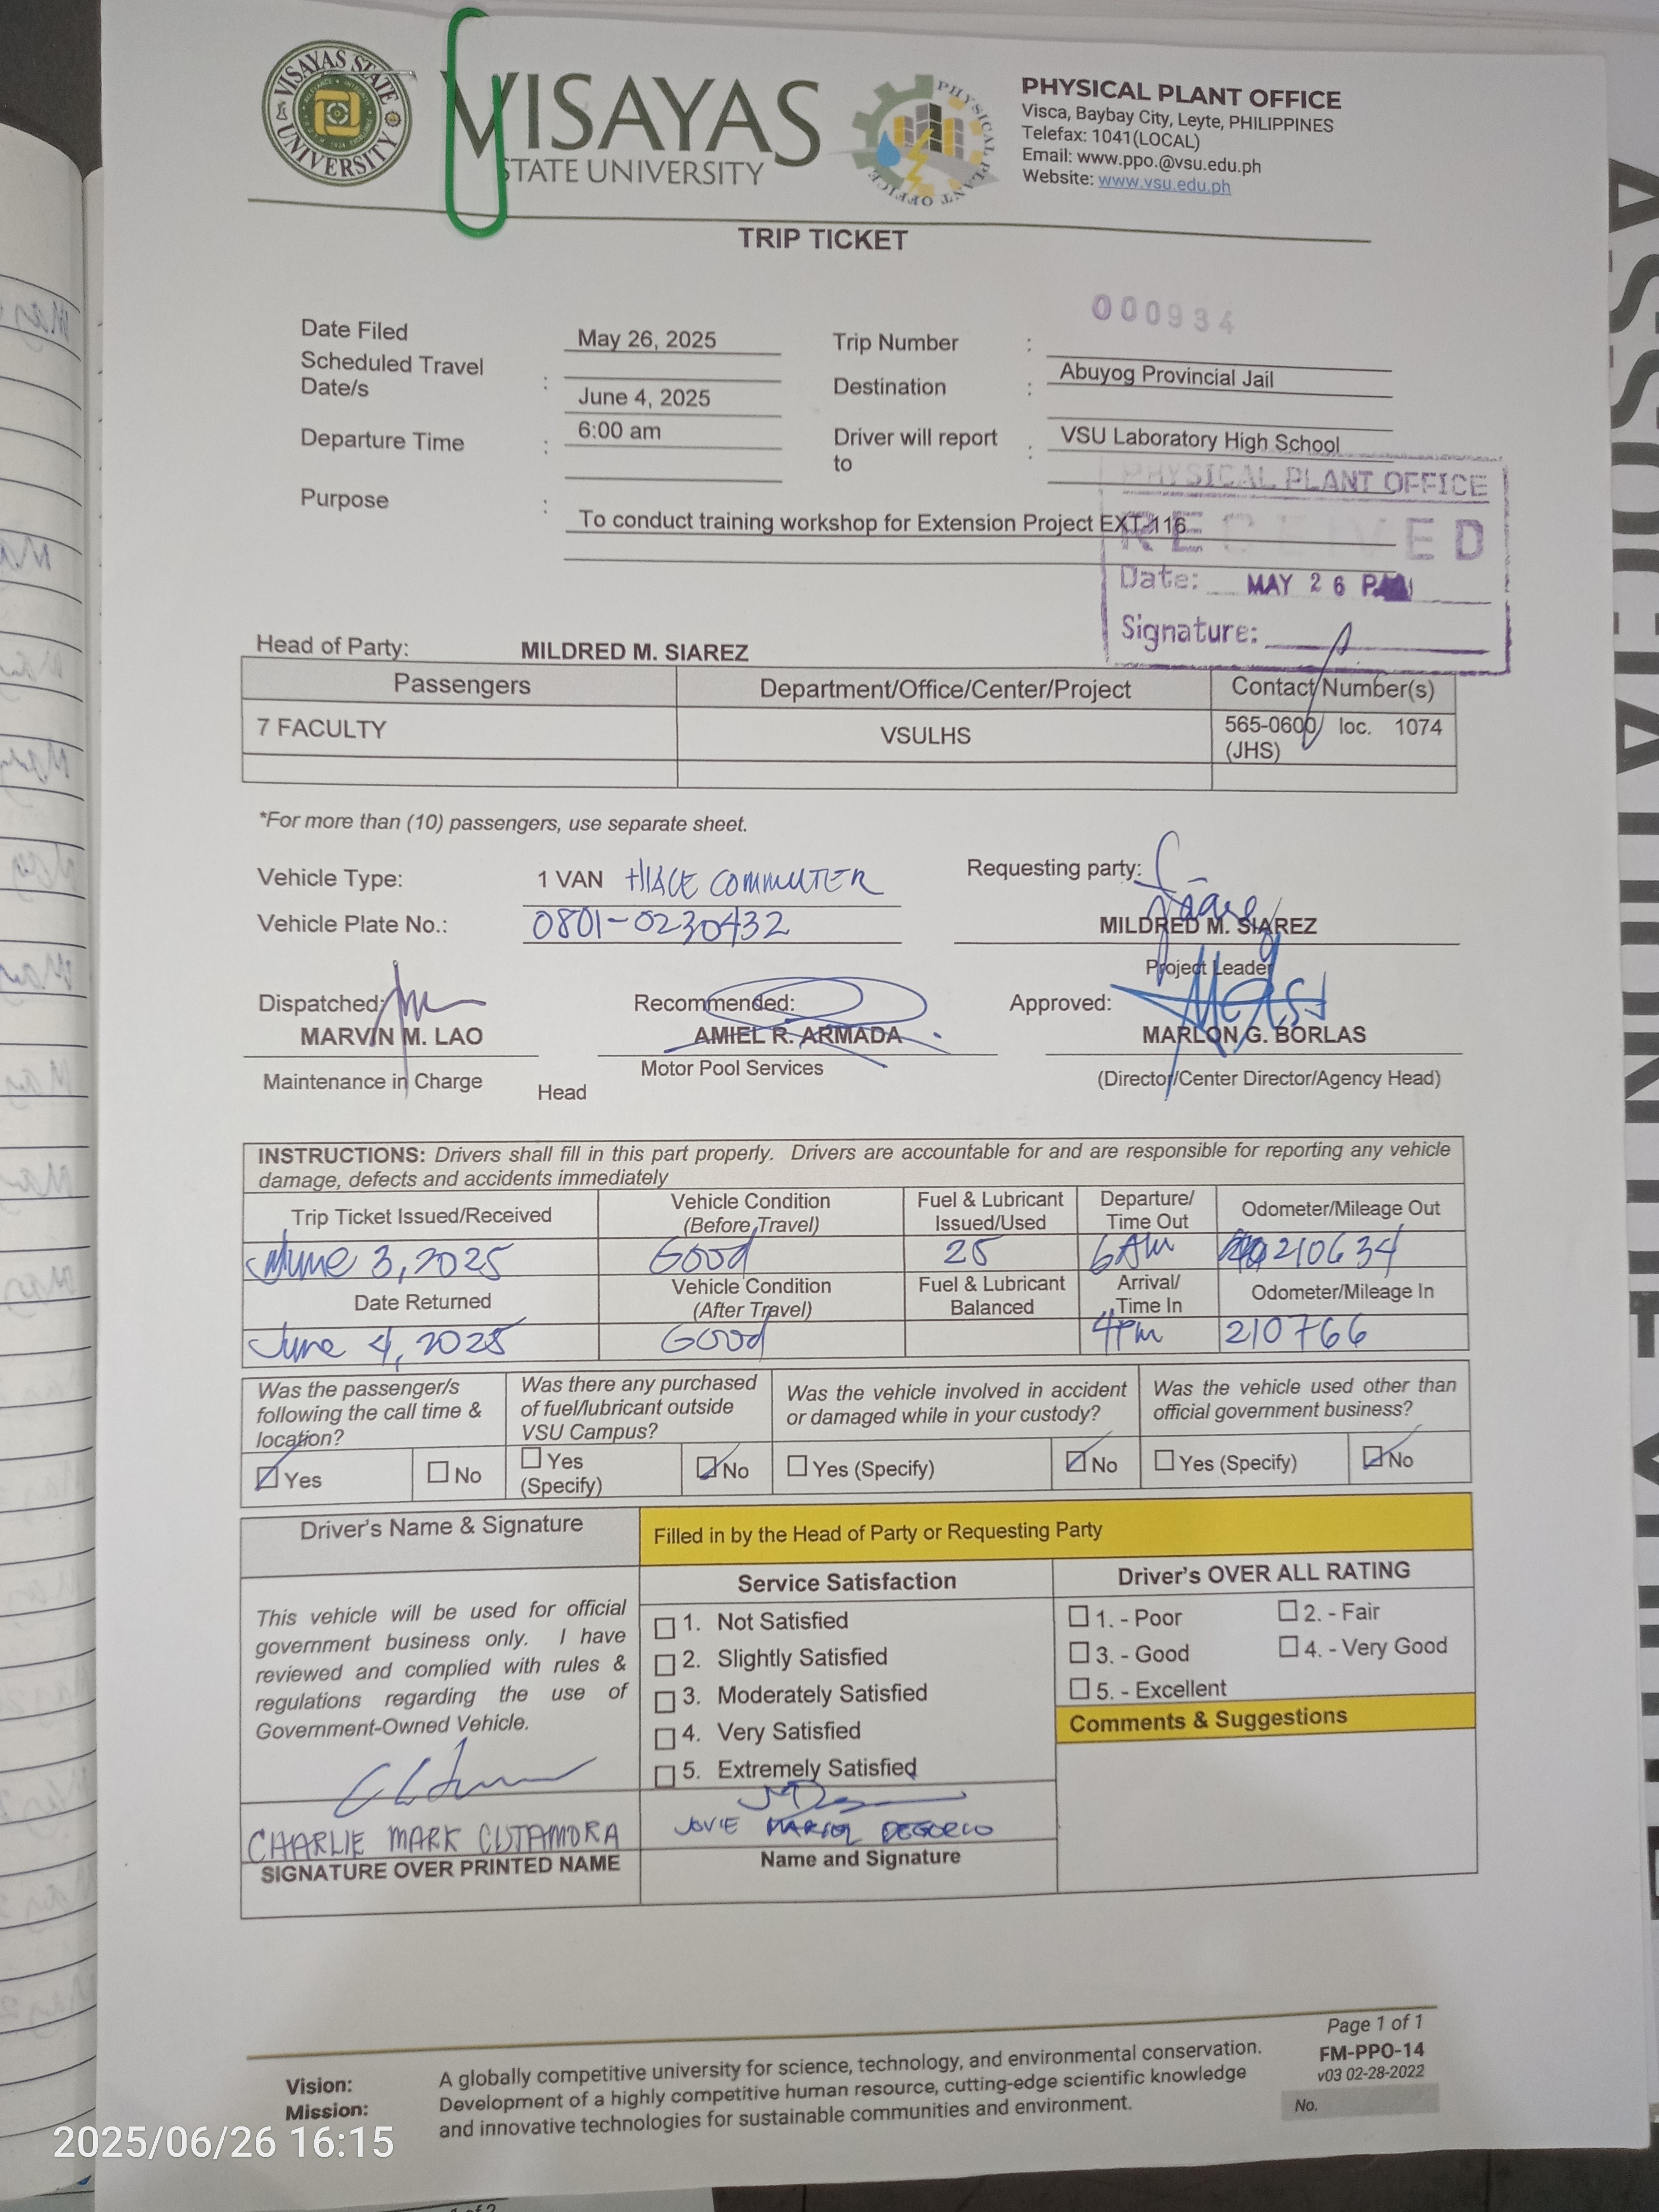 VISAYAS STATE UNIVERSITY
VISAYAS
STATE UNIVERSITY
PHYSICAL PLANT OFFICE
PHYSICAL PLANT OFFICE
Visca, Baybay City, Leyte, PHILIPPINES
Telefax: 1041(LOCAL)
Email: www.ppo.@vsu.edu.ph
Website: www.vsu.edu.ph
TRIP TICKET
000934
Date Filed May 26, 2025 Trip Number :
Scheduled Travel Date/s : June 4, 2025 Destination : Abuyog Provincial Jail
Departure Time : 6:00 am Driver will report to : VSU Laboratory High School
Purpose : To conduct training workshop for Extension Project EXT-116
PHYSICAL PLANT OFFICE
RECEIVED
Date: MAY 26
Signature:
Head of Party: MILDRED M. SIAREZ
Passengers Department/Office/Center/Project Contact Number(s)
7 FACULTY VSULHS 565-0600/ loc. 1074
(JHS)
*For more than (10) passengers, use separate sheet.
Vehicle Type: 1 VAN HIACE COMMUTER Requesting party:
Vehicle Plate No.: 0801-0230432 MILDRED M. SIAREZ
Project Leader
Dispatched: Recommended: Approved:
MARVIN M. LAO AMIEL R. ARMADA MARLON G. BORLAS
Maintenance in Charge Head Motor Pool Services (Director/Center Director/Agency Head)
INSTRUCTIONS: Drivers shall fill in this part properly. Drivers are accountable for and are responsible for reporting any vehicle
damage, defects and accidents immediately
Trip Ticket Issued/Received Vehicle Condition (Before Travel) Fuel & Lubricant Issued/Used Departure/ Time Out Odometer/Mileage Out
June 3, 2025 Good 25 6Am 210634
Date Returned Vehicle Condition (After Travel) Fuel & Lubricant Balanced Arrival/ Time In Odometer/Mileage In
June 4, 2025 Good 4pm 210766
Was the passenger/s following the call time & location? Was there any purchased of fuel/lubricant outside VSU Campus? Was the vehicle involved in accident or damaged while in your custody? Was the vehicle used other than official government business?
☑ Yes ☐ No ☐ Yes (Specify) ☑ No ☐ Yes (Specify) ☑ No ☐ Yes (Specify) ☑ No
Driver's Name & Signature Filled in by the Head of Party or Requesting Party
Service Satisfaction Driver's OVER ALL RATING
This vehicle will be used for official
government business only. I have
reviewed and complied with rules &
regulations regarding the use of
Government-Owned Vehicle.
☐ 1. Not Satisfied
☐ 2. Slightly Satisfied
☐ 3. Moderately Satisfied
☐ 4. Very Satisfied
☐ 5. Extremely Satisfied
☐ 1. - Poor ☐ 2. - Fair
☐ 3. - Good ☐ 4. - Very Good
☐ 5. - Excellent
Comments & Suggestions
CHARLIE MARK CUTAMORA
SIGNATURE OVER PRINTED NAME
JOVIE DEGORIO
Name and Signature
Page 1 of 1
FM-PPO-14
v03 02-28-2022
No.
Vision: A globally competitive university for science, technology, and environmental conservation.
Mission: Development of a highly competitive human resource, cutting-edge scientific knowledge
and innovative technologies for sustainable communities and environment.
2025/06/26 16:15